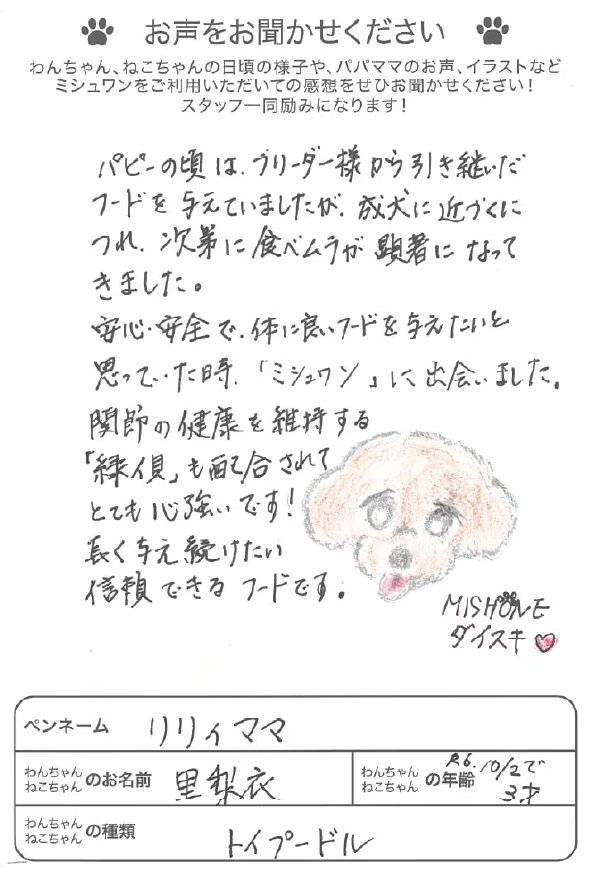 お声をお聞かせください
わんちゃん、ねこちゃんの日頃の様子や、パパママのお声、イラストなど
ミシュワンをご利用いただいての感想をぜひお聞かせください!
スタッフ一同励みになります!
パピーの頃は、ブリーダー様から引き継いだ
フードを与えていましたが、成犬に近づくに
つれ、次第に食べムラが顕著になって
きました。
安心・安全で、体に良いフードを与えたいと
思っていた時、「ミシュワン」に出会いました。
関節の健康を維持する
「緑イ貝」も配合されて
とても心強いです!
長く与え続けたい
信頼できるフードです。
MISHONE
ダイスキ
ペンネーム リリィママ
わんちゃん
ねこちゃん のお名前 里梨衣
わんちゃん
ねこちゃん の年齢 R6.10/2で
3才
わんちゃん
ねこちゃん の種類 トイプードル